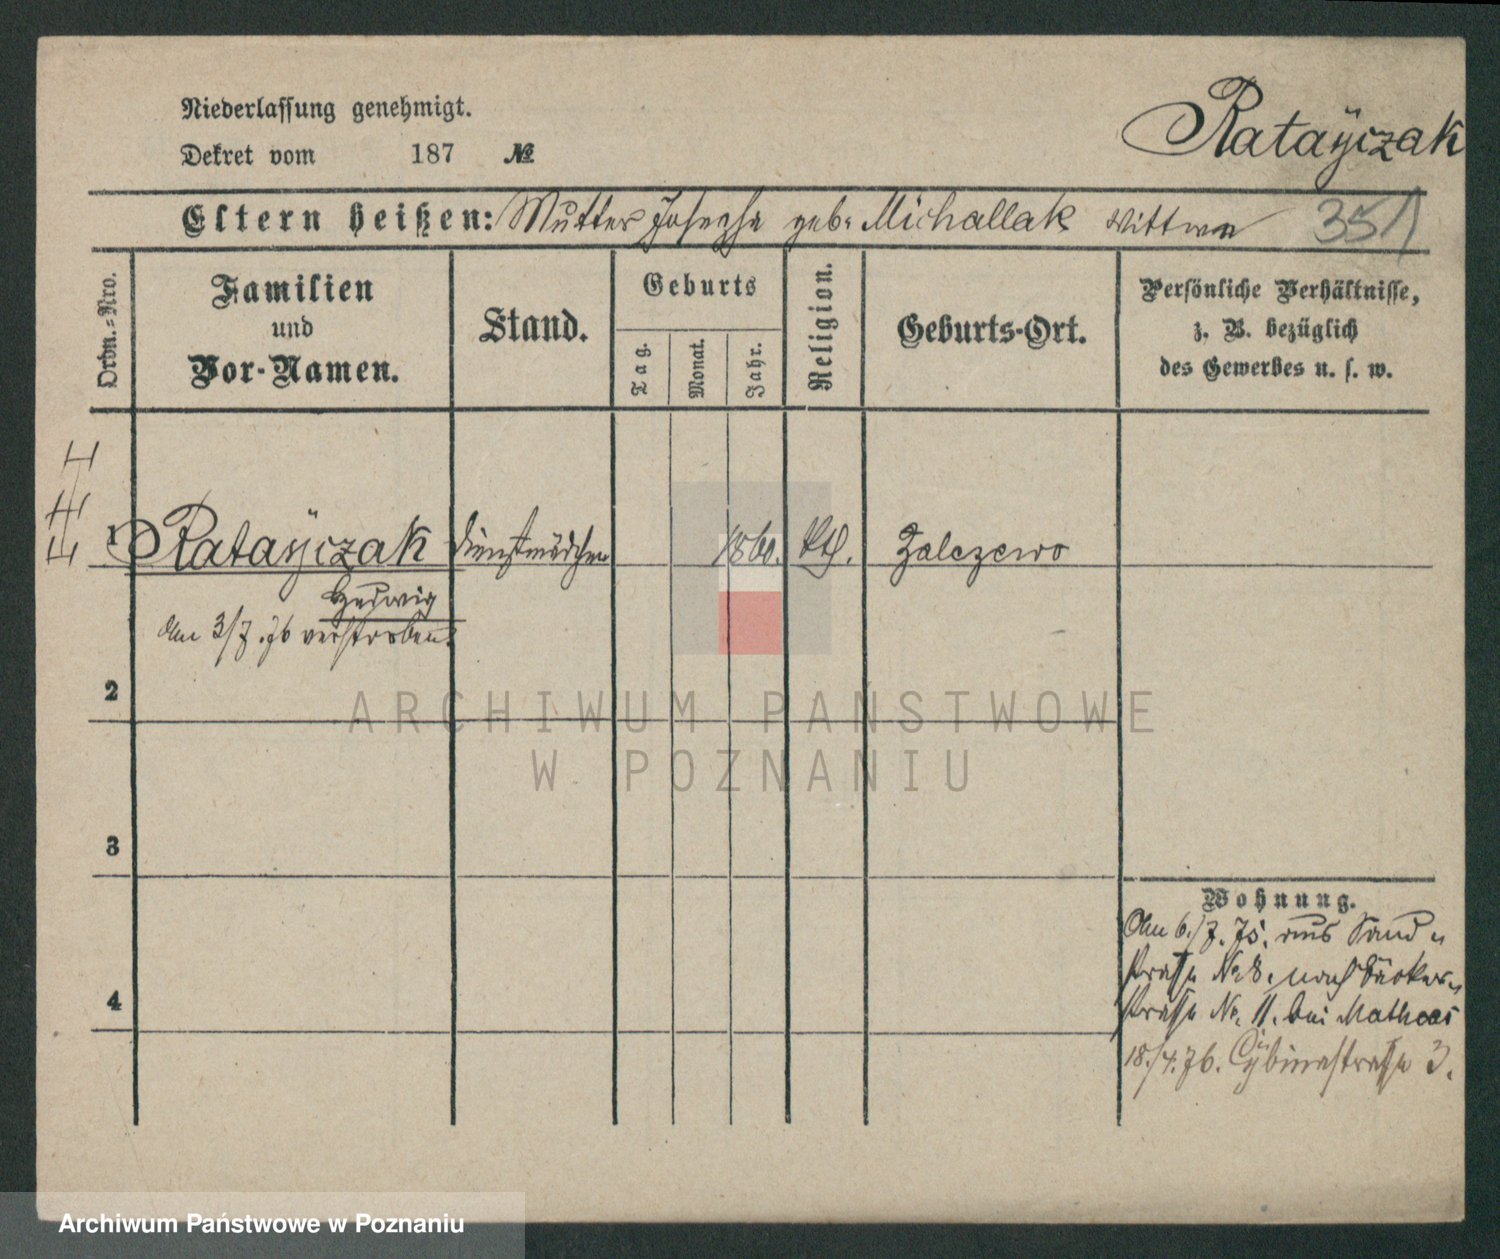 Niederlassung genehmigt.
Dekret vom 187 №
Ratayczak
Eltern heißen: Mutter Josepha geb. Michallak Wittwe 351
Ordn.-Nro.
Familien
und
Vor-Namen.
Stand.
Geburts
Tag.
Monat.
Jahr.
Religion.
Geburts-Ort.
Persönliche Verhältnisse,
z. B. bezüglich
des Gewerbes u. s. w.
1 Ratayczak Dienstmädchen 1860. kth. Zalezewo
Hedwig
Am 3/7.76 verstorben.
2
3
4
Wohnung.
Am 6./7. 75. aus Sand„
straße No 8. nach Bäcker„
straße No. 11. bei Matheas
18./4.76. Cybinastraße 3.
ARCHIWUM PAŃSTWOWE
W POZNANIU
Archiwum Państwowe w Poznaniu